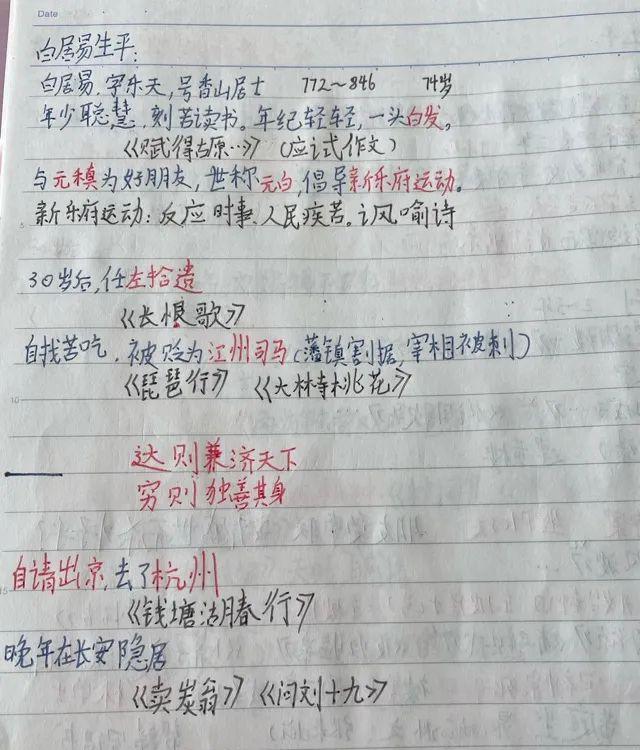 Date
白居易生平:
白居易,字乐天,号香山居士 772～846 74岁
年少聪慧,刻苦读书。年纪轻轻,一头白发。
《赋得古原…》(应试作文)
与元稹为好朋友,世称元白,倡导新乐府运动。
新乐府运动:反应时事、人民疾苦。讽喻诗
30岁后,任左拾遗
《长恨歌》
自找苦吃,被贬为江州司马(藩镇割据,宰相被刺)
《琵琶行》 《大林寺桃花》
达则兼济天下
穷则独善其身
自请出京,去了杭州
《钱塘湖春行》
晚年在长安隐居
《卖炭翁》《问刘十九》